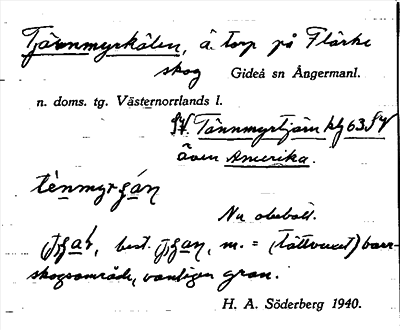 Tjännmyrkälen, å torp på Flärke
skog Gideå sn Ångermanl.
n. doms. tg. Västernorrlands l.
SV Tännmyrtjärn kbl 63 SV
även Amerika.
tènmyr
Nu obebott.
best. m. = (tättvuxet) barr-
skogsområde, vanligen gran.
H. A. Söderberg 1940.